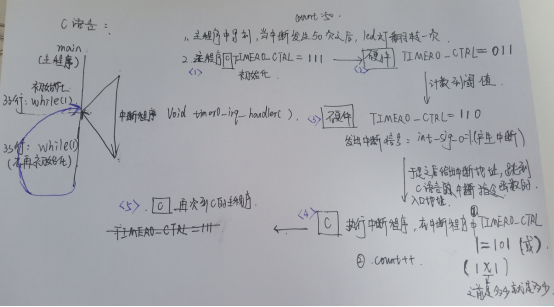 C语言：
count=50.
main
(主程序)
1. 主程序中序到，当中断发生50次之后，led灯翻转一次
2. 主程序 C TIMER0_CTRL = 111 → <2> 硬件 TIMER0_CTRL = 011
<1> 初始化
初始化
35行：while(1)
中断程序 Void timer0_irq_handler().
↓ 计数到阈值.
<3> 硬件 TIMER0_CTRL = 110
发出中断信号：int_sig_o=1(产生中断)
35行：while(1)
(不再初始化)
于是之后给出中断地址，跳到
C语言的中断函数的
入口地址.
<5>. C 再次到C的主程序.
TIMER0_CTRL = 111
<4> C 执行中断程序，在中断程序中 ① TIMER0_CTRL
|= 101 (或)
② count++.
(1X1)
之前是多少就是多少